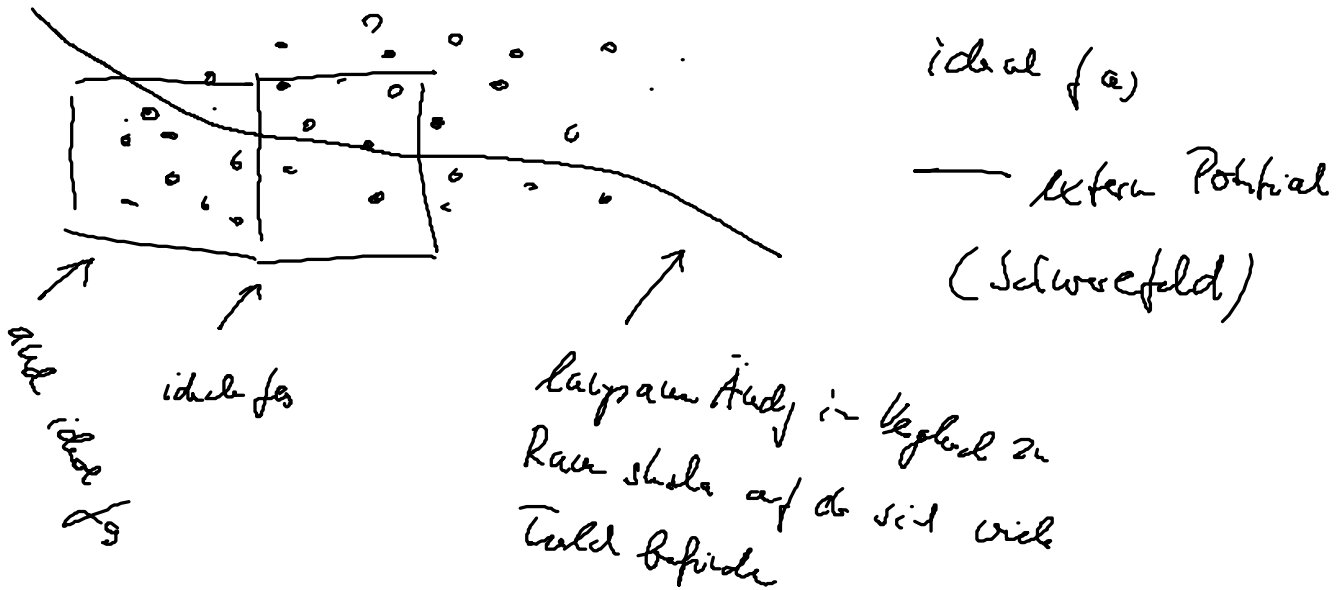 ideal Gas
extern Potential
(Schwerefeld)
auch
ideales
Gas
ideales Gas
langsame Ändg im Vergleich zu
Raumskala auf der sich viele
Teilch befinden